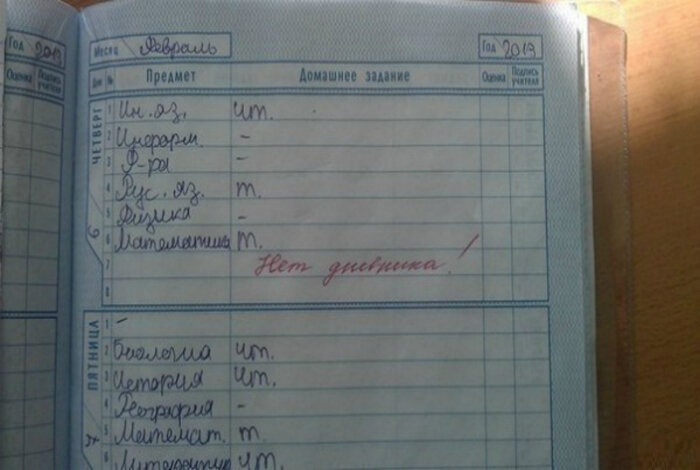 Год 2013
Оценка Подпись учителя
Месяц Февраль Год 2013
Дни № Предмет Домашнее задание Оценка Подпись учителя
ЧЕТВЕРГ 6
1 Ин. яз. чт.
2 Информ. -
3 Ф-ра -
4 Рус. яз. т.
5 Физика -
6 Математика т.
7 Нет дневника!
8
ПЯТНИЦА
1 -
2 Биология чт.
3 История чт.
4 География -
5 Математ. т.
6 Литератур чт.